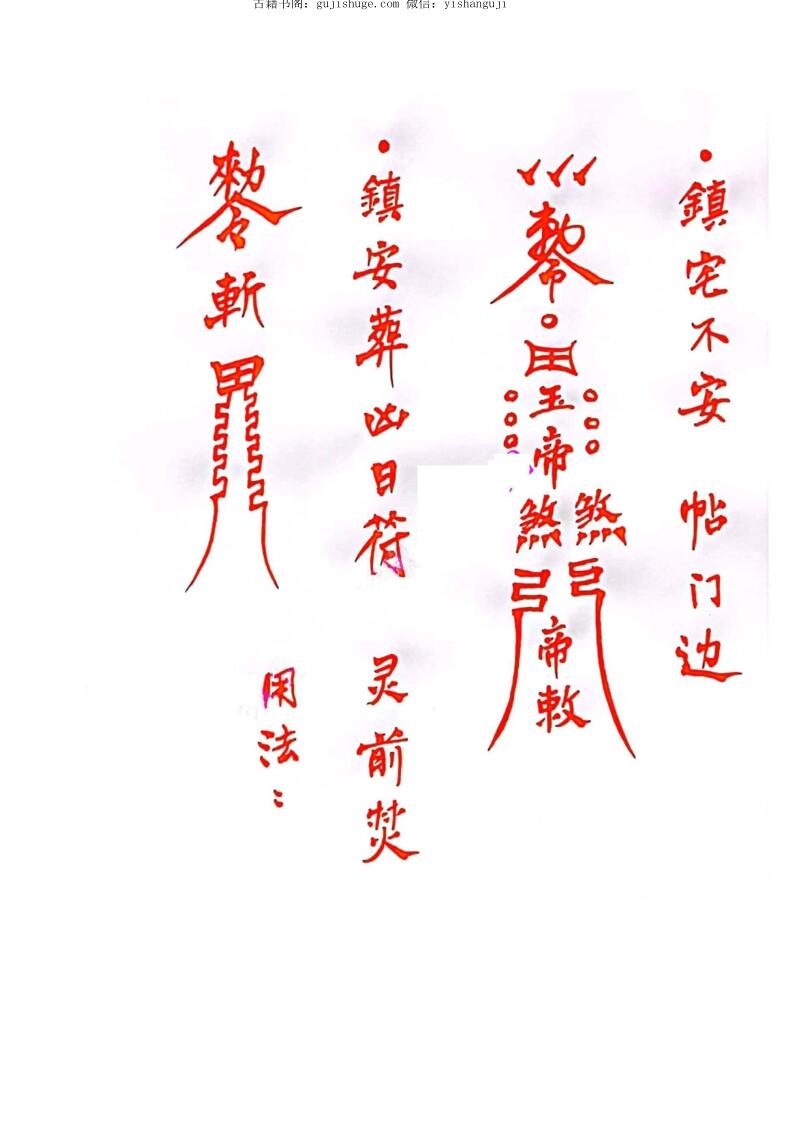 古籍书阁：gujishuge.com 微信：yishanguji
・鎮宅不安 帖门边
勅令
玉帝煞煞
帝敕
・鎮安葬凶日符 灵前焚
勅令斬
用法：